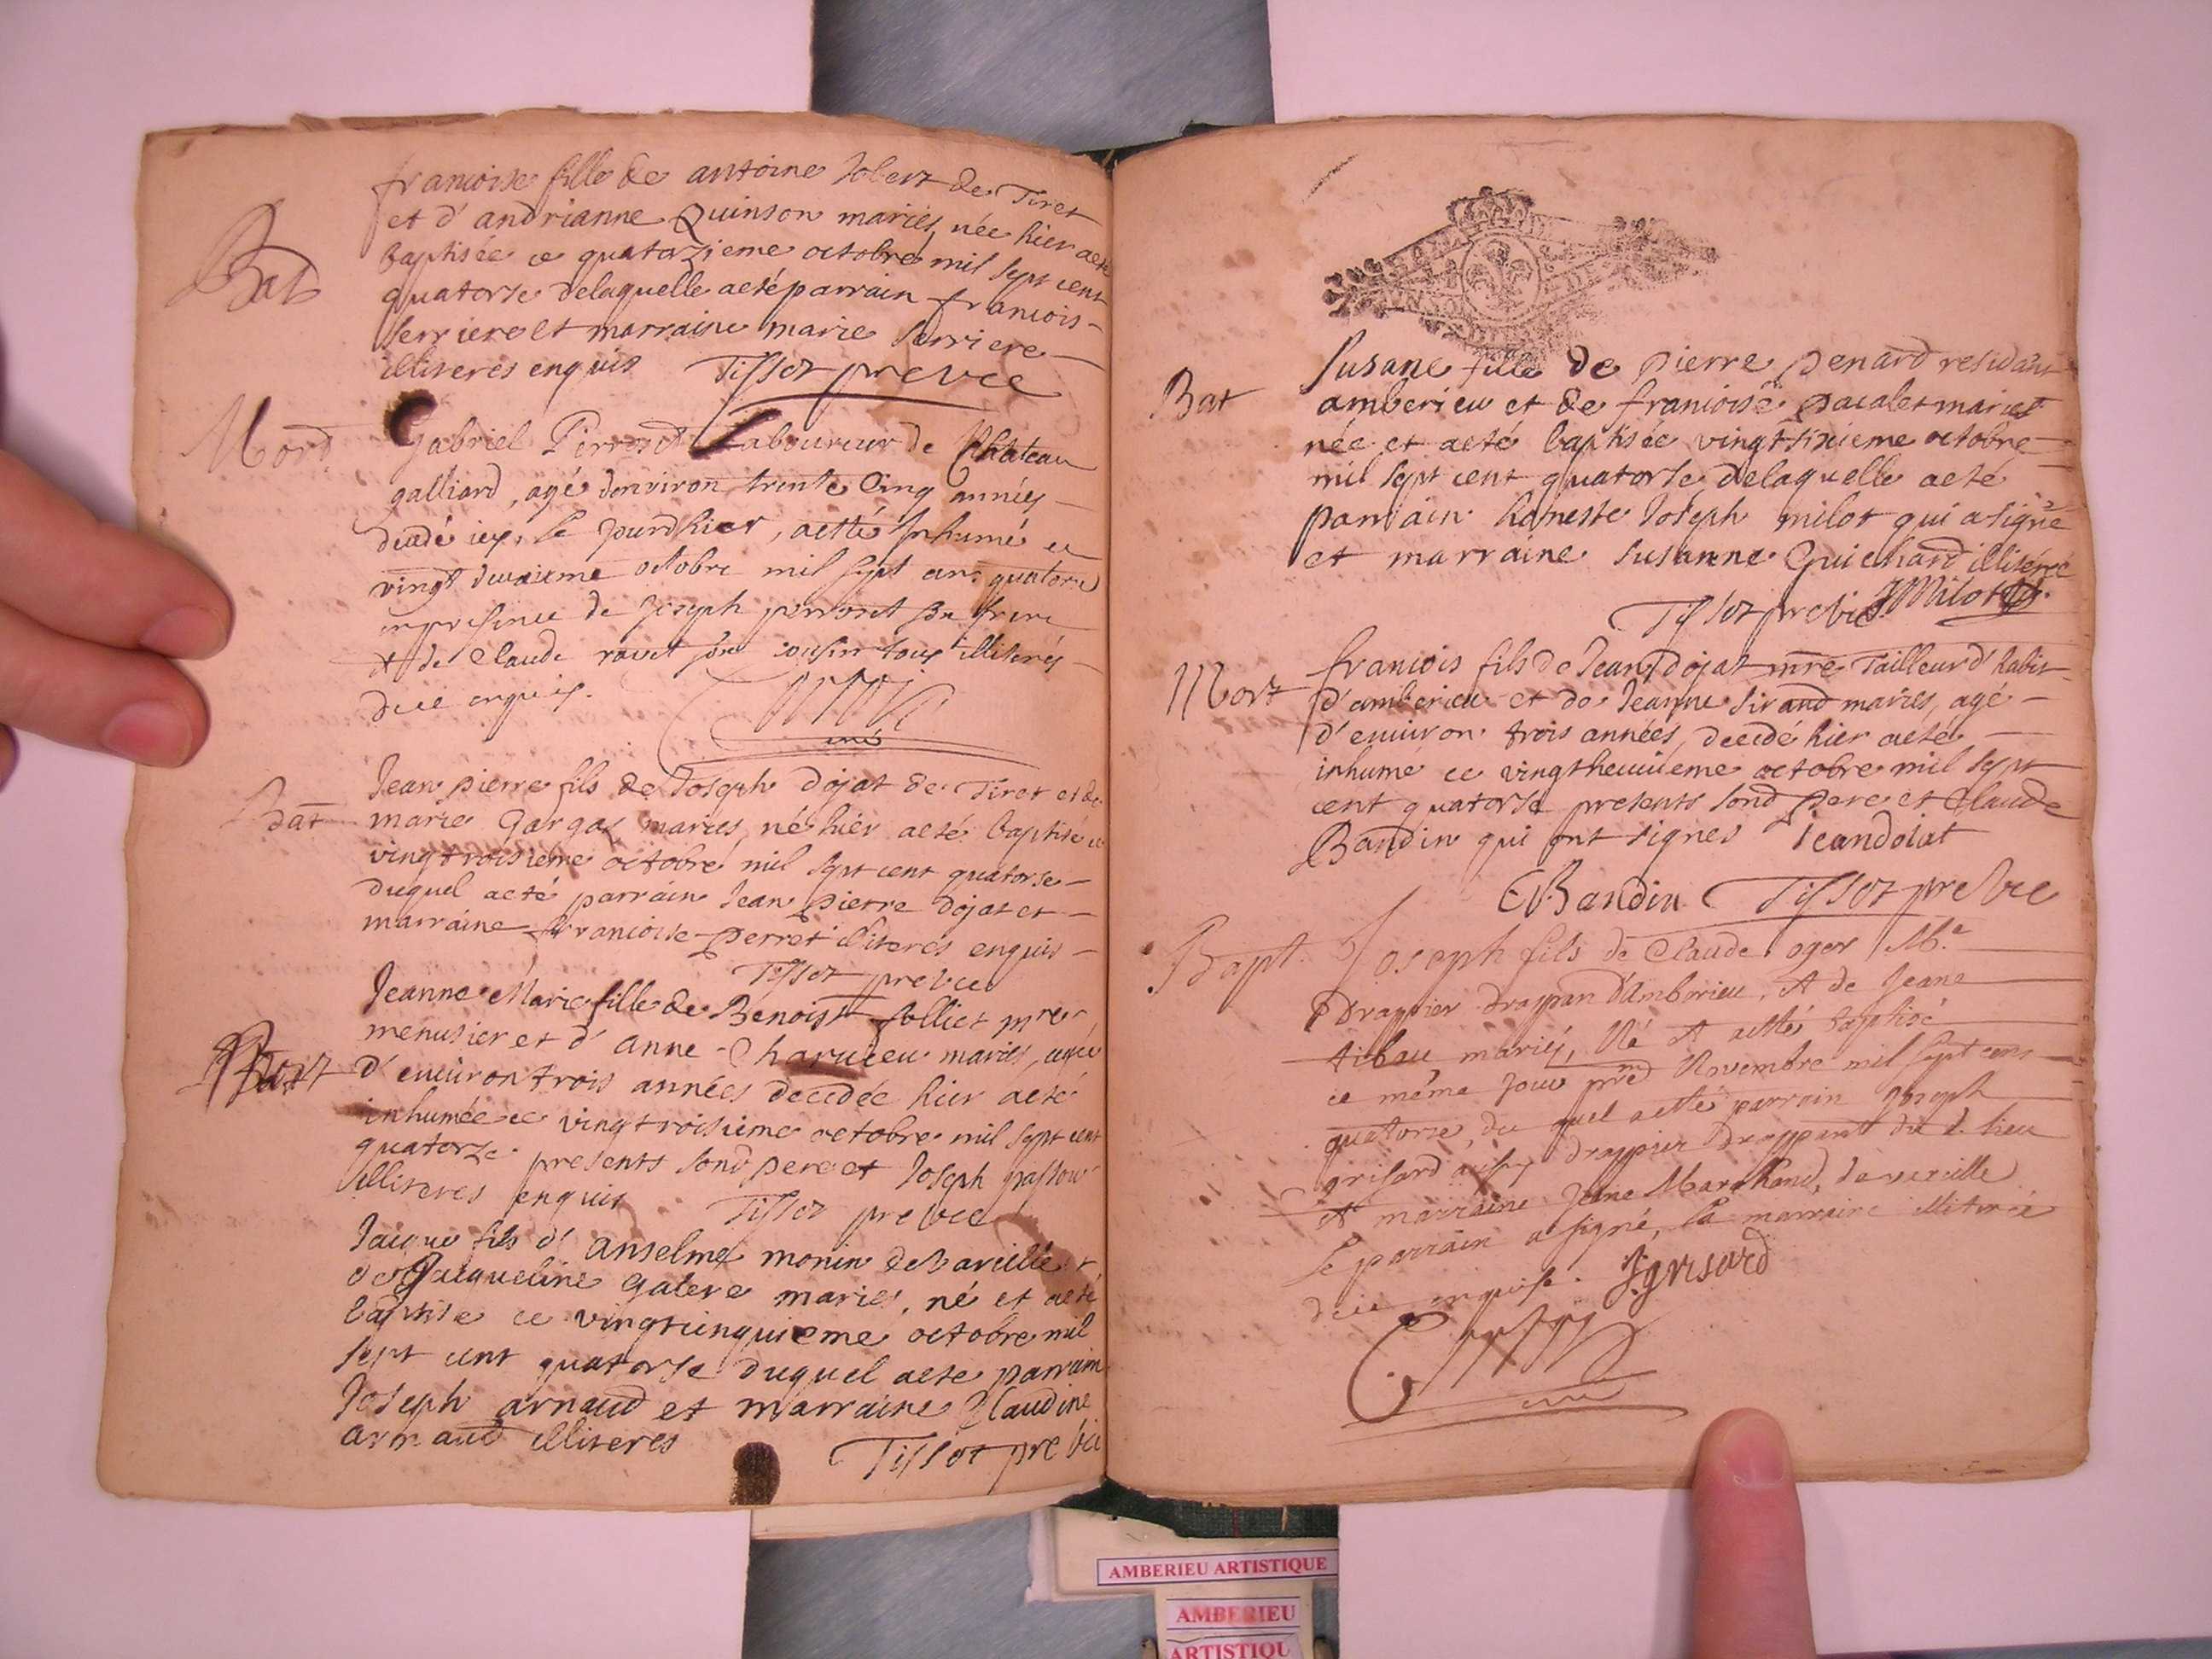 Bat
francoise fille de antoine Jobert de Tiret
et d'andrianne Quinson mariés, née hier aeté
baptisée ce quatorzieme octobre mil sept cent
quatorse delaquelle aeté parrain francois
serriere et marraine marie serriere
illiterés enquis Tissot prebvre
Mord
Gabriel Perroset Laboureur de Chateau
galliard, agé denviron trente cinq années
decedé icy, le jourdhier, aetté inhumé ce
vingt deuxieme octobre mil sept cens quatorse
en presence de Joseph perroset son frere
et de Claude ravet son cousin tous illiterés
dece enquis.
curé
Bat
Jean pierre fils de Joseph dojat de Tiret et de
marie Gargas mariés, né hier aeté baptisé ce
vingtroisieme octobre mil sept cent quatorse
duquel aeté parrain Jean pierre dojat et
marraine francoise perret illiteres enquis
Tissot prebvre
Mort
Jeanne Marie fille de Benoist folliet mre
menusier et d'anne Charvideu mariés, agée
d'environ trois années decedée hier aeté
inhumée ce vingtroisieme octobre mil sept cent
quatorze presents sond pere et Joseph
illiteres enquis Tissot prebvre
Jaique fils d'anselme monin de Vareille et
de Jacqueline Galere mariés, né et aeté
baptisé ce vingtcinquieme octobre mil
sept cent quatorse duquel aeté parrain
Joseph arnaud et marraine Claudine
arnaud illiteres Tissot prebvre
Bat
Susane fille de pierre penard residant
amberieu et de francoise pacalet mariés
née et aeté baptisée vingtsixieme octobre
mil sept cent quatorse delaquelle aeté
parrain honneste Joseph milot qui a signé
et marraine Susanne Guichard illiterée
Tissot prebvre JMilot
Mort
francois fils de Jean dojat mre Tailleur d'habit
d'amberieu et de Jeanne Sirand mariés, agé
d'environ trois années, decedé hier aeté
inhumé ce vingtheuitieme octobre mil sept
cent quatorse presents sond pere et Claude
Bandin qui ont signes Jeandoiat
CBandin Tissot prebvre
Bapt.
Joseph fils de Claude oger Me
Drappier drappan d'Amberieu, et de Jeane
tibau mariés, né et aetté baptisé
ce même jour pred Novembre mil sept cens
quatorse, du quel aetté parrain Joseph
grisard aussy drappier Drappant du d. lieu
et marraine Jeane Marchand, de vareille
le parrain a signé, la marraine illiterée
dece enquise. Jgrisard
curé
AMBERIEU ARTISTIQUE
AMBERIEU
ARTISTIQU